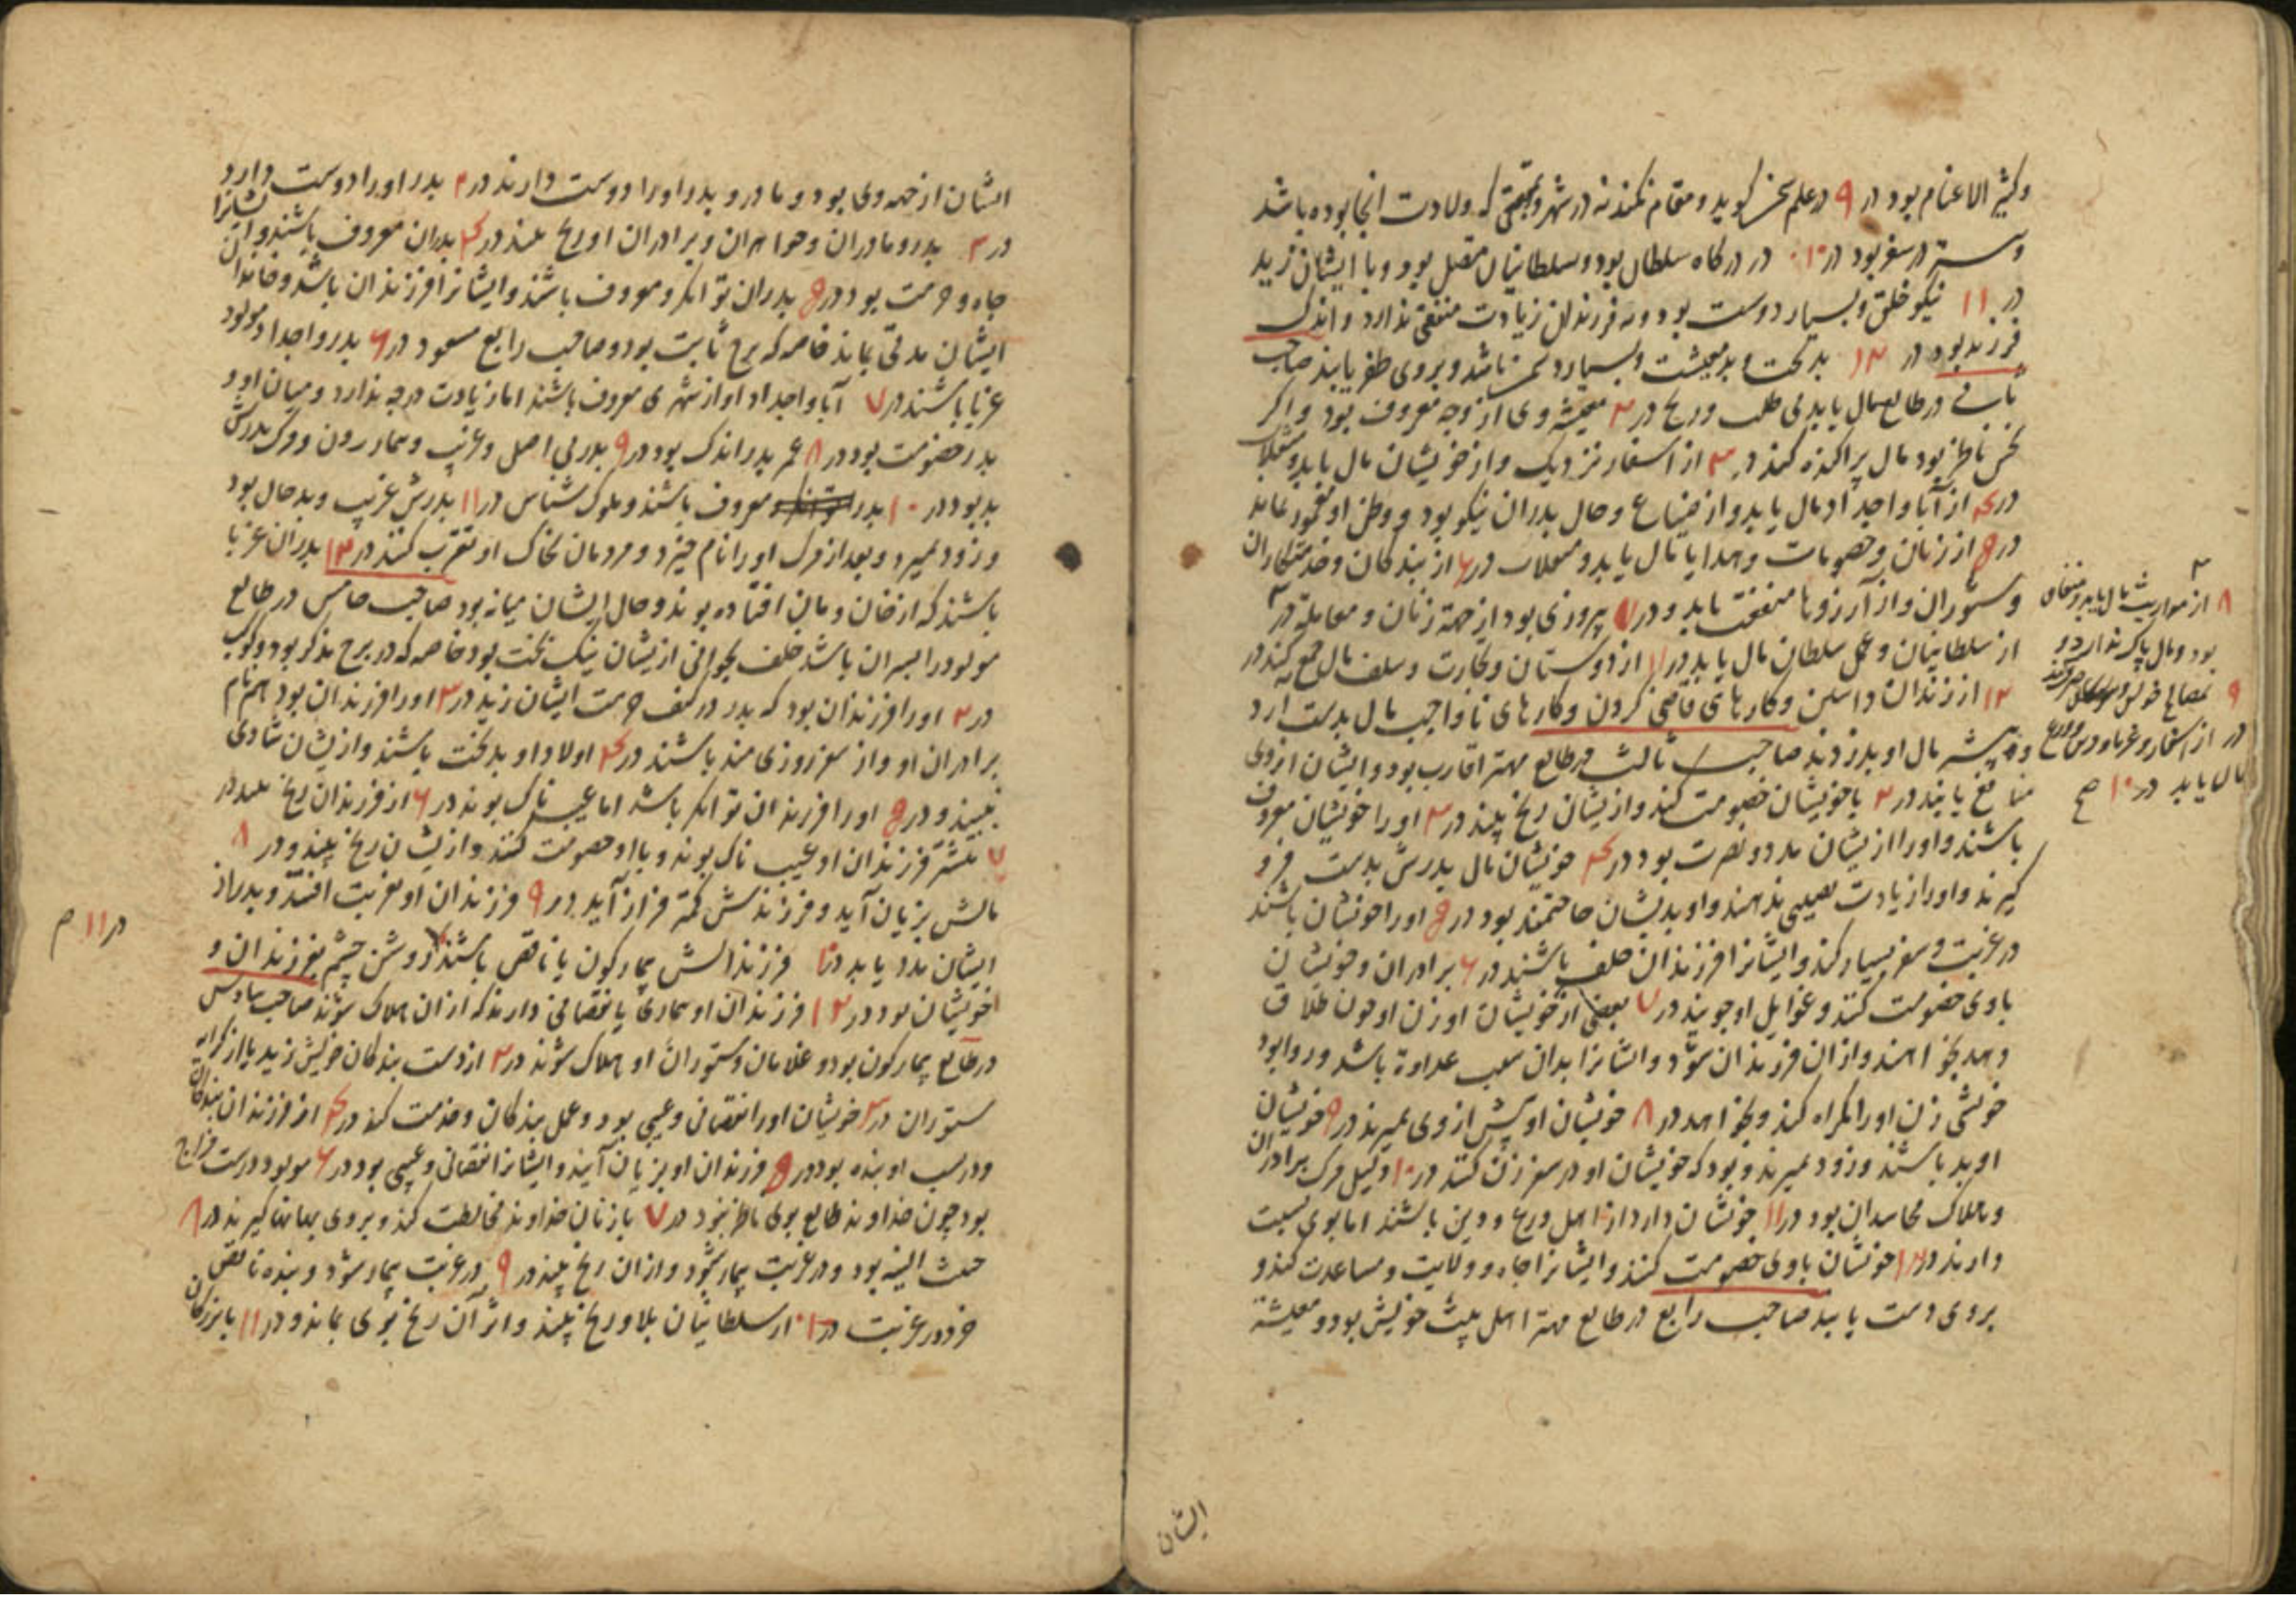 وکثیر الاغنام بود در ۹ در علم سخن کوید و مقام نکند نه در شهر و بقعتی که ولادت انجا بوده باشد
در سفر بود در ۱۰ در درکاه سلطان بود و سلطانیان مقبل بود و با ایشان زید
در ۱۱ نیکو خلق و بسیار دوست بود و نه فرزندان زیادت منفعتی ندارد و اندک
فرزند بود در ۱۲ بدبخت و بد معیشت و بسیار دشمن باشد و بر وی ظفر یابند صاحب
ثانی در طالع مال یابد بی طلب و رنج در ۲ معیشه وی از وجه معروف بود و اکر
نحس ناظر بود مال پراکنده کند در ۳ از اسفار نزدیک و از خویشان مال یابد
در ۴ از آبا و اجداد مال یابد و از ضیاع و حال پدران نیکو بود و وطن او
در ۵ از زنان و خصومات و هدایا مال یابد و در ۶ از بندکان و خدمتکاران
و ستوران و از آرزوها منفعت یابد و در ۷ پیروزی بود از جهة زنان و معامله در
از سلطانیان و عمل سلطان مال یابد در ۱۱ از دوستان و تجارت و سلف مال جمع کند در
۱۲ از زندان داشتن و کارهای قاضی کردن و کارهای ناواجب مال بدست آرد
مال او بدزدند صاحب ثالث در طالع مهتر اقارب بود و ایشان از وی
منافع یابند در ۲ با خویشان خصومت کند و از یشان رنج بیند در ۳ او را خویشان معروف
باشند و او را از یشان مدد و نصرت بود در ۴ خویشان مال پدرش بدست فرو
کیرند و او را زیادت نصیبی ندهند و او بدیشان حاجتمند بود در ۵ او را خویشان باشند
در غربت و سفر بسیار کند و ایشانرا فرزندان خلف باشند در ۶ برادران و خویشان
با وی خصومت کنند و غوایل او جویند در ۷ بعضی از خویشان او زن او چون طلاق
دهد بخواهند و از ان فرزندان شود و ایشانرا بدان سبب عداوة باشد و روا بود
خویشی زن او را اکراه کند و بخواهد در ۸ خویشان او پیش از وی بمیرند در ۹ خویشان
او بد باشند و زود بمیرند و بود که خویشان او در سفر زن کنند در ۱۰ دلیل مرک برادران
و هلاک محاسدان بود در ۱۱ خویشان دارد از اهل ورع و دین باشند اما بوی نسبت
دارند در ۱۲ خویشان با وی خصومت کنند و ایشانرا جاه و ولایت و مساعدت کند و
بر وی دست یابند صاحب رابع در طالع مهتر اهل بیت خویش بود و معیشة
۸ از مواریث مال یابد
بود و مال پاک ندارد و
۹
در از اسفار و غربا
مال یابد در ۱۰ صح
ایشان
ایشان از جهه وی بود و مادر و پدر او را دوست دارند در ۲ پدر او را دوست دارد
در ۳ پدر و مادران و خواهران و برادران او رنج بیند در ۴ پدران معروف باشند و ایشانرا
جاه و حرمت بود در ۵ پدران توانکر و معروف باشند و ایشانرا فرزندان باشد و خاندان
ایشان مدتی بماند خاصه که برج ثابت بود و صاحب رابع مسعود در ۶ پدر و اجداد مولود
غربا باشند در ۷ آبا و اجداد او از شهری معروف باشند اما زیادت درجه ندارد و میان او و
پدر خصومت بود در ۸ عمر پدر اندک بود در ۹ پدر بی اصل و غریب و بیمار و مرک پدرش
بد بود در ۱۰ پدر توانکر و معروف باشند و ملوک شناس در ۱۱ پدرش غریب و بدحال بود
و زود بمیرد و بعد از مرک او را نام خیزد و مردمان بخاک او تقرب کنند در ۱۲ پدران غربا
باشند که از خان و مان افتاده بوند و حال ایشان میانه بود صاحب خامس در طالع
مولود را پسران باشد خلف بجوانی از یشان نیک بخت بود خاصه که در برج مذکر بود و کوکب
در ۲ او را فرزندان بود که پدر در کنف حرمت ایشان زید در ۳ او را فرزندان بود هم نام
برادران او و از سفر روزی مند باشند در ۴ اولاد او بدبخت باشند و از یشان شادی
نبیند و در ۵ او را فرزندان توانکر باشد اما عیب ناک بوند در ۶ از فرزندان رنج بیند در
۷ بیشتر فرزندان او عیب ناک بوند و با او خصومت کنند و از یشان رنج بیند و در ۸
مالش بزیان آید و فرزندش کمتر فراز آید در ۹ فرزندان او بغربت افتند و پدر از
ایشان مدد یابد در ۱۰ فرزندانش بیمار کون یا ناقص باشند روشن چشم بفرزندان و
خویشان بود در ۱۲ فرزندان او بیماری یا نقصانی دارند که از ان هلاک شوند صاحب سادس
در طالع بیمار کون بود و غلامان و ستوران او هلاک شوند در ۲ از دست بندکان خویش زید یا از کرایه
ستوران در ۳ خویشان او را نقصان و عیبی بود و عمل بندکان و خدمت کند در ۴ از فرزندان بندکان
و در نسب او بنده بود در ۵ فرزندان او بزیان آیند و ایشانرا نقصانی و عیبی بود در ۶ مولود درست مزاج
بود چون خداوند طالع بوی ناظر نبود در ۷ با زنان خداوند مخالطت کند و بر وی بهانها کیرند در ۸
خبیث النیه بود و در غربت بیمار شود و از ان رنج بیند در ۹ در غربت بیمار شود و بنده ناقص
خرد در غربت در ۱۰ از سلطانیان بلا و رنج بیند و اثر آن رنج بوی بماند و در ۱۱ با بزرکان
در ۱۱ م